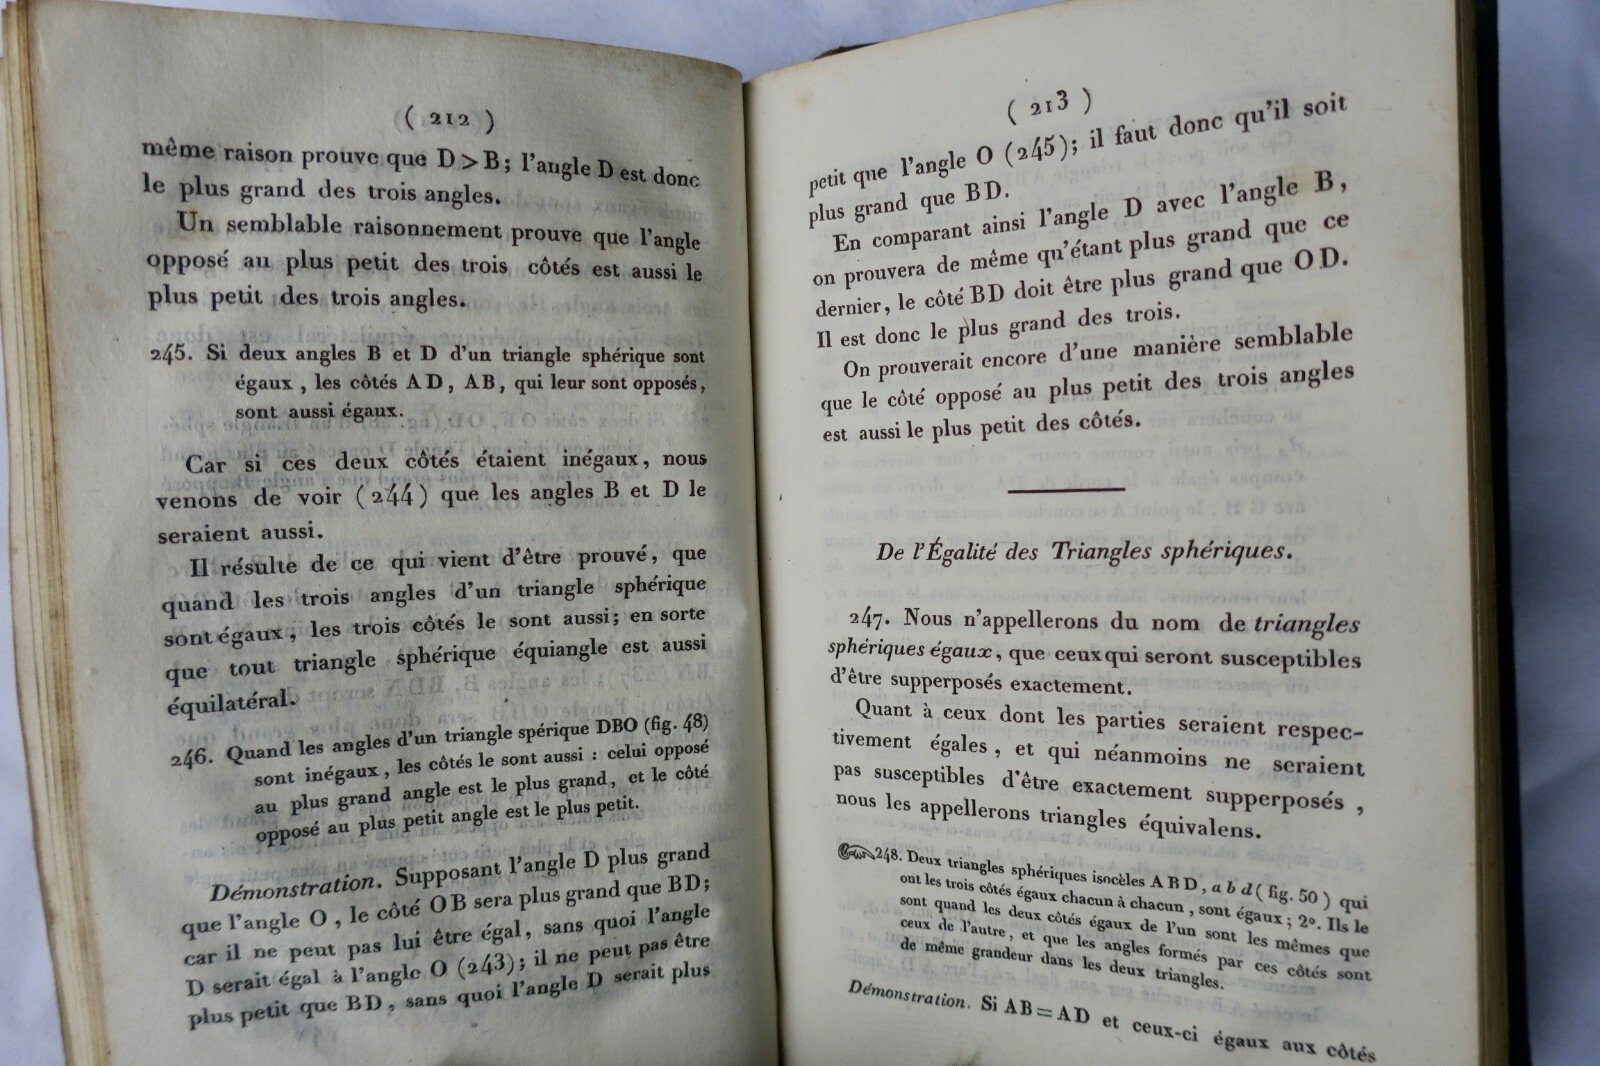 ( 212 )
même raison prouve que D > B; l'angle D est donc
le plus grand des trois angles.
Un semblable raisonnement prouve que l'angle
opposé au plus petit des trois côtés est aussi le
plus petit des trois angles.
245. Si deux angles B et D d'un triangle sphérique sont
égaux, les côtés AD, AB, qui leur sont opposés,
sont aussi égaux.
Car si ces deux côtés étaient inégaux, nous
venons de voir (244) que les angles B et D le
seraient aussi.
Il résulte de ce qui vient d'être prouvé, que
quand les trois angles d'un triangle sphérique
sont égaux, les trois côtés le sont aussi; en sorte
que tout triangle sphérique équiangle est aussi
équilatéral.
246. Quand les angles d'un triangle spérique DBO (fig. 48)
sont inégaux, les côtés le sont aussi : celui opposé
au plus grand angle est le plus grand, et le côté
opposé au plus petit angle est le plus petit.
Démonstration. Supposant l'angle D plus grand
que l'angle O, le côté OB sera plus grand que BD;
car il ne peut pas lui être égal, sans quoi l'angle
D serait égal à l'angle O (243); il ne peut pas être
plus petit que BD, sans quoi l'angle D serait plus
( 213 )
petit que l'angle O (245); il faut donc qu'il soit
plus grand que BD.
En comparant ainsi l'angle D avec l'angle B,
on prouvera de même qu'étant plus grand que ce
dernier, le côté BD doit être plus grand que OD.
Il est donc le plus grand des trois.
On prouverait encore d'une manière semblable
que le côté opposé au plus petit des trois angles
est aussi le plus petit des côtés.
De l'Égalité des Triangles sphériques.
247. Nous n'appellerons du nom de triangles
sphériques égaux, que ceux qui seront susceptibles
d'être supperposés exactement.
Quant à ceux dont les parties seraient respec-
tivement égales, et qui néanmoins ne seraient
pas susceptibles d'être exactement supperposés,
nous les appellerons triangles équivalens.
248. Deux triangles sphériques isocèles ABD, a b d (fig. 50) qui
ont les trois côtés égaux chacun à chacun, sont égaux; 2°. Ils le
sont quand les deux côtés égaux de l'un sont les mêmes que
ceux de l'autre, et que les angles formés par ces côtés sont
de même grandeur dans les deux triangles.
Démonstration. Si AB = AD et ceux-ci égaux aux côtés